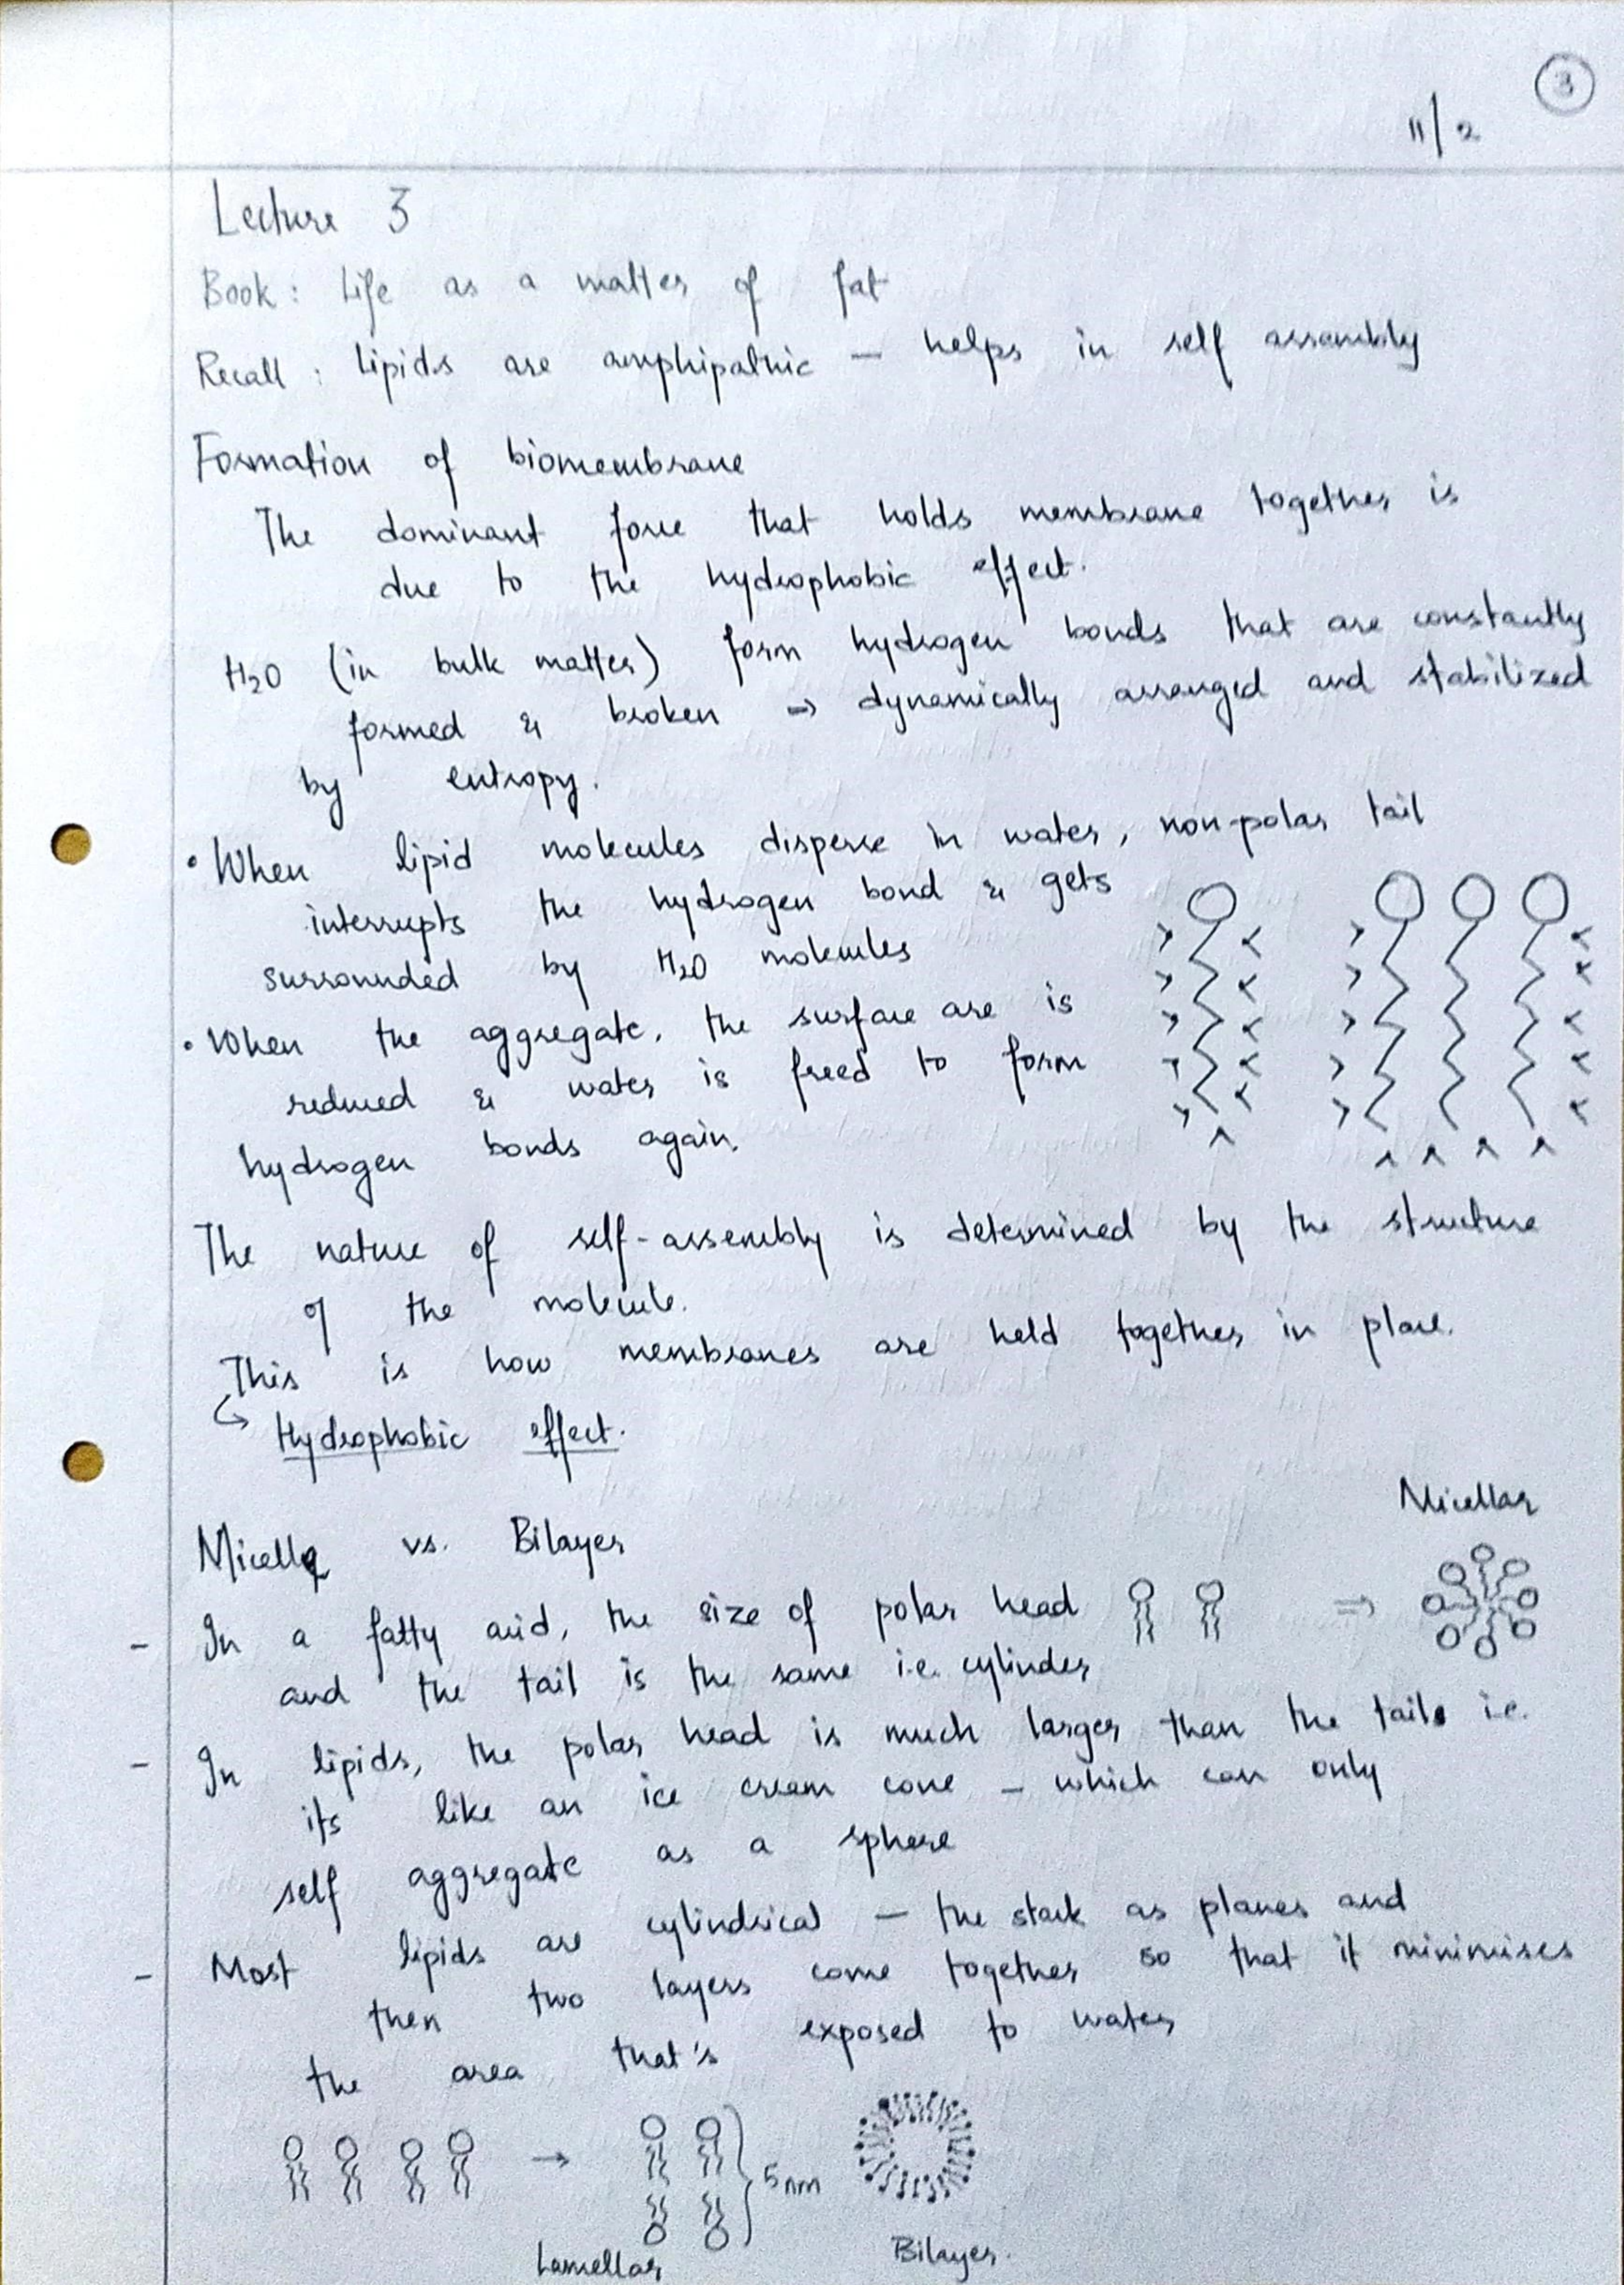 3
11/2
Lecture 3
Book: Life as a matter of fat
Recall: Lipids are amphipathic — helps in self assembly
Formation of biomembrane
The dominant force that holds membrane together is
due to the hydrophobic effect.
H2O (in bulk matter) form hydrogen bonds that are constantly
formed & broken ⇒ dynamically arranged and stabilized
by entropy.
• When lipid molecules disperse in water, non-polar tail
interrupts the hydrogen bond & gets
surrounded by H2O molecules
• When the aggregate, the surface are is
reduced & water is freed to form
hydrogen bonds again.
The nature of self-assembly is determined by the structure
of the molecule.
This is how membranes are held together in place.
↳ Hydrophobic effect.
Micelle vs. Bilayer
Micellar
- In a fatty acid, the size of polar head
and the tail is the same i.e. cylinder
- In lipids, the polar head is much larger than the tail i.e.
its like an ice cream cone – which can only
self aggregate as a sphere
- Most lipids are cylindrical – the stack as planes and
then two layers come together so that it minimises
the area that's exposed to water
5nm
Lamellar
Bilayer.